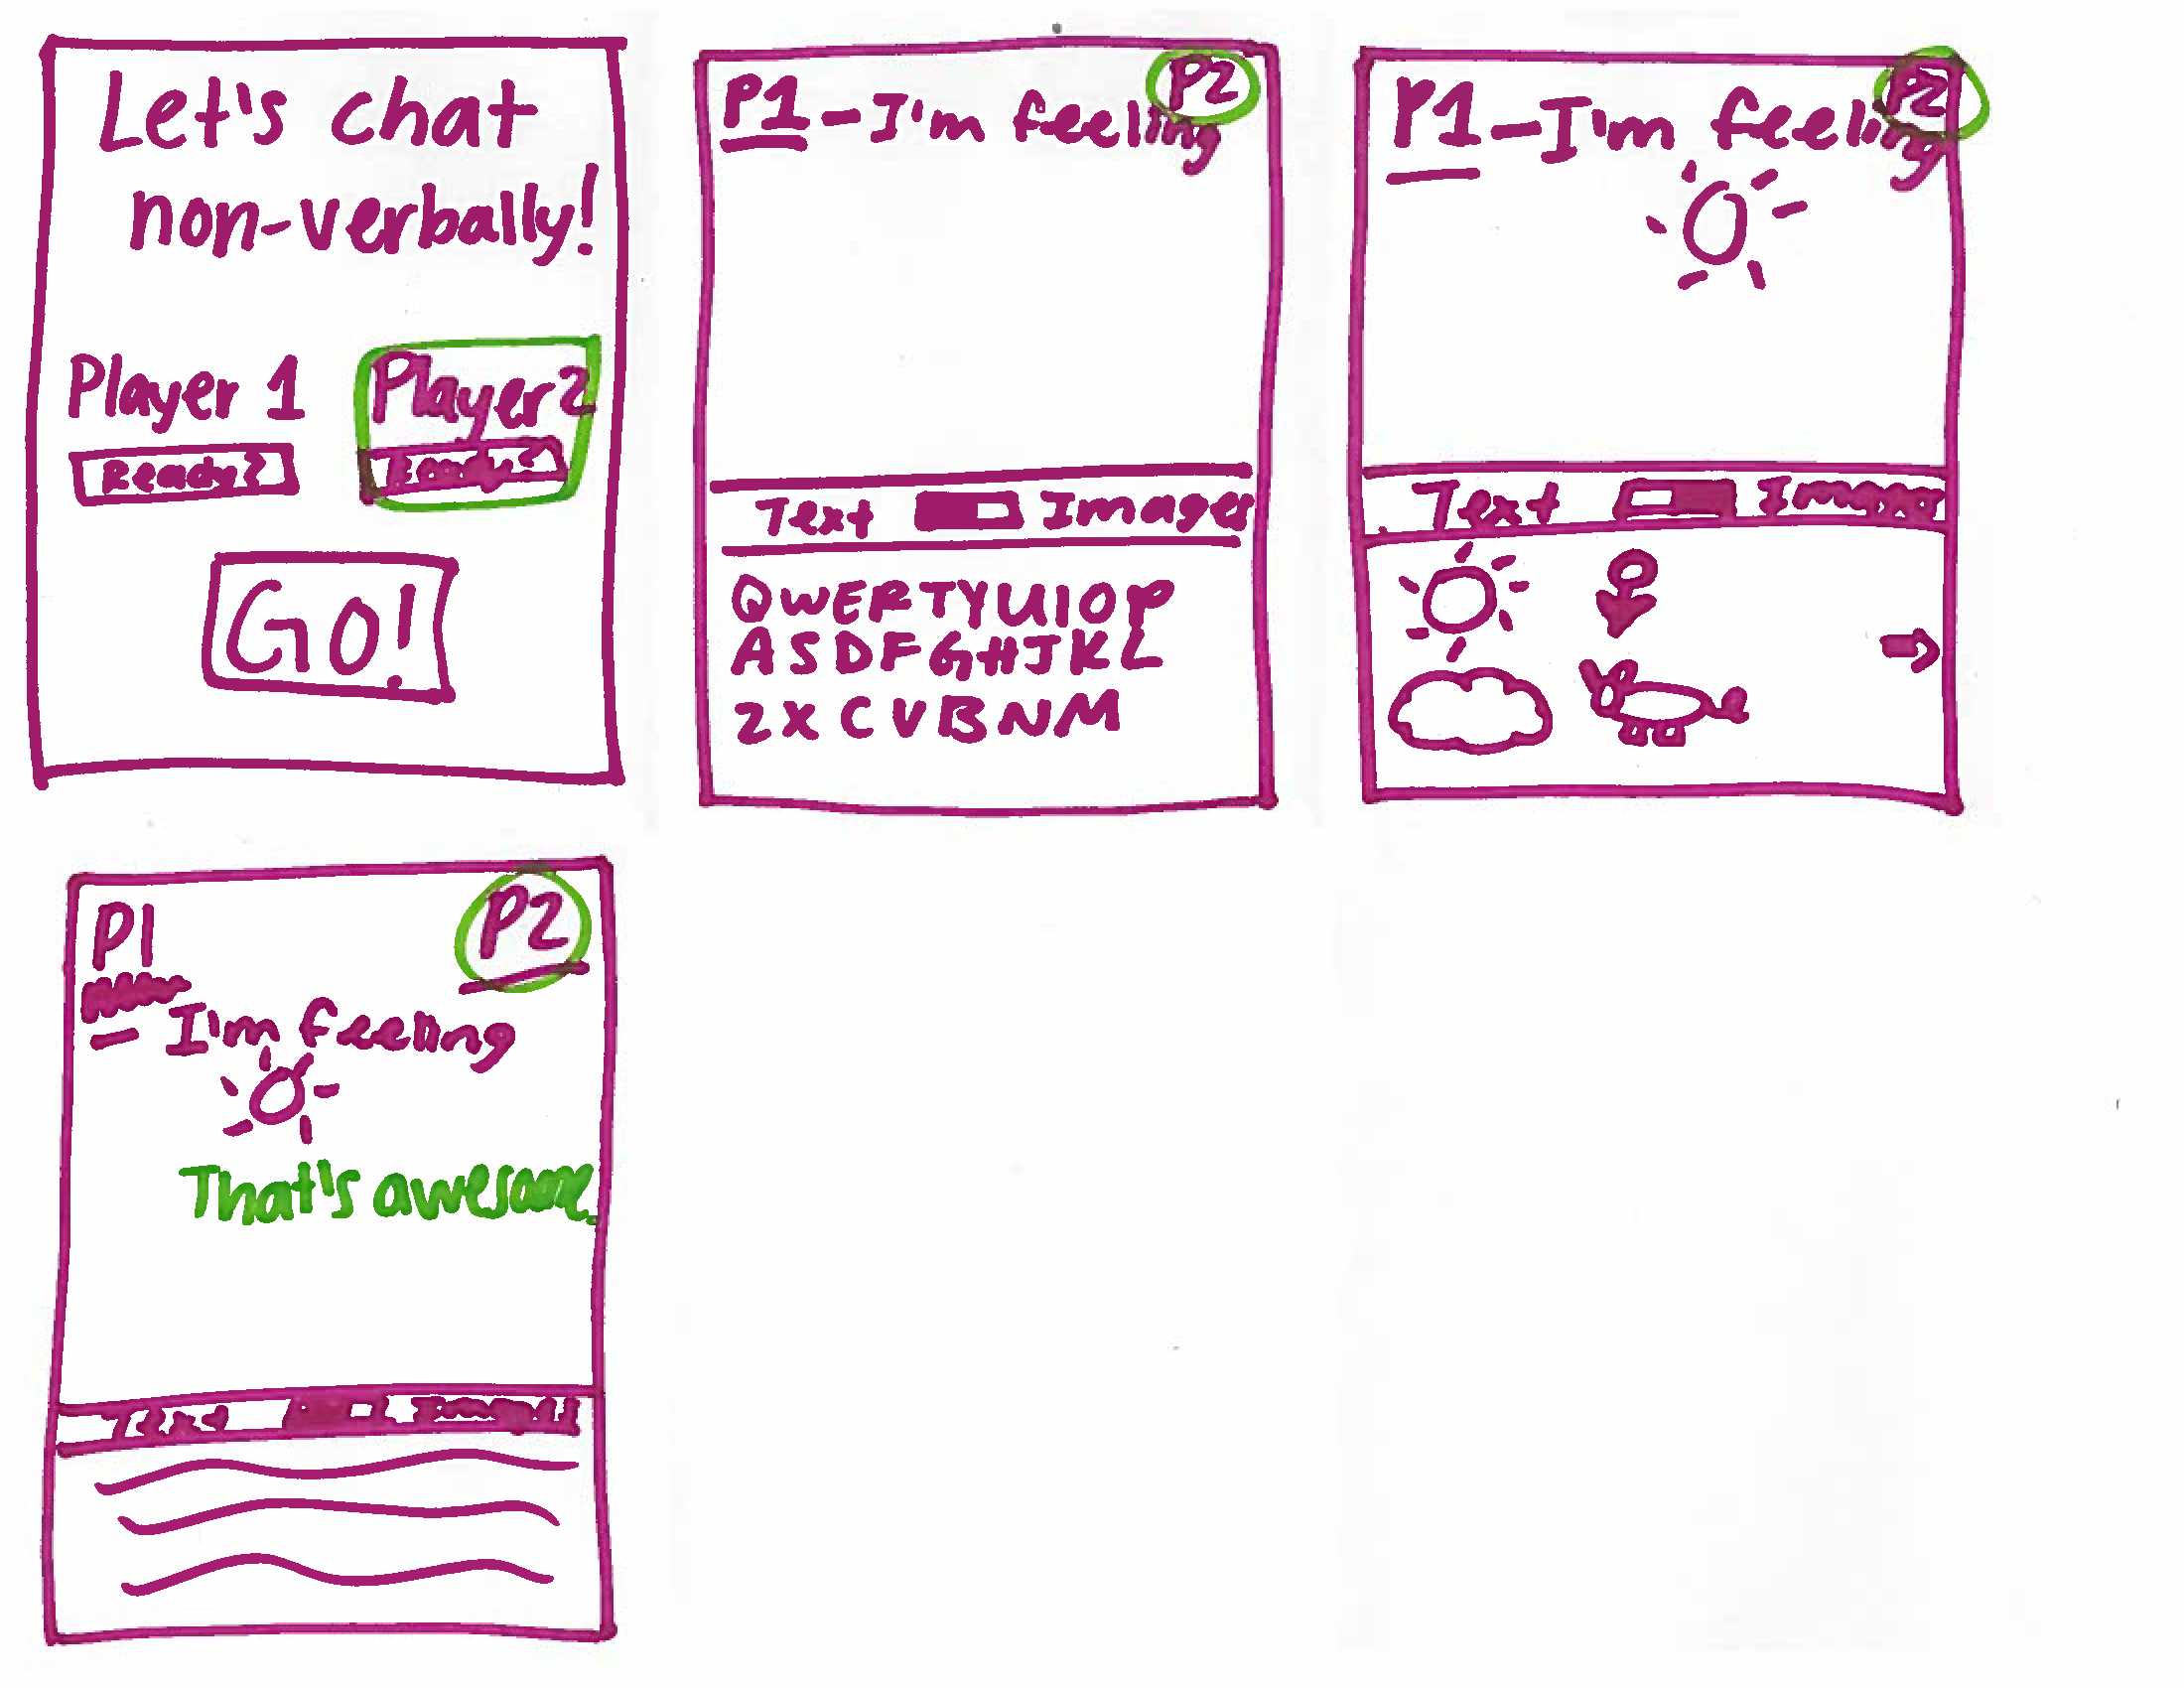 Let's chat
non-verbally!
Player 1 Player 2
Ready? Ready?
Go!
P1 - I'm feeling P2
Text Images
QWERTYUIOP
ASDFGHJKL
ZXCVBNM
P1 - I'm feeling P2
Text Images
P1 P2
- I'm feeling
That's awesome.
Text Images